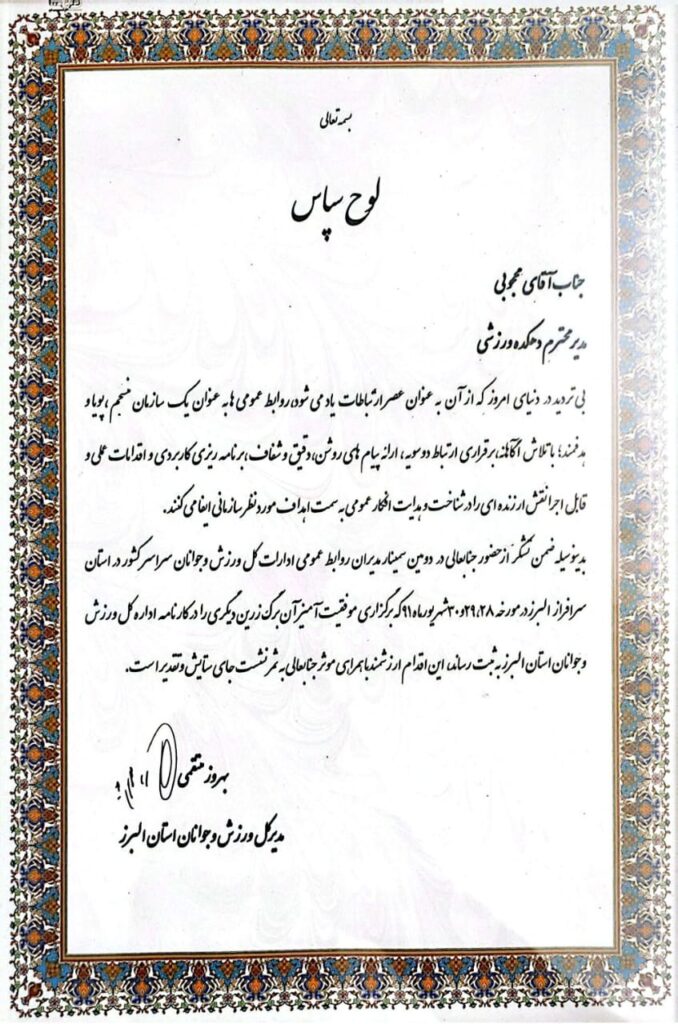 بسمه تعالی
لوح سپاس
جناب آقای محجوبی
مدیر محترم دهکده ورزشی
بی تردید در دنیای امروز که از آن به عنوان عصر ارتباطات یاد می شود، روابط عمومی ها به عنوان یک سازمان منسجم، پویا و
هدفمند؛ با تلاش آگاهانه، برقراری ارتباط دوسویه، ارائه پیام های روشن، دقیق و شفاف، برنامه ریزی کاربردی و اقدامات عملی و
قابل اجرا نقش ارزنده ای را در شناخت و هدایت افکار عمومی به سمت اهداف مورد نظر سازمانی ایفا می کنند.
بدینوسیله ضمن تشکر از حضور جنابعالی در دومین سمینار مدیران روابط عمومی ادارات کل ورزش و جوانان سراسر کشور در استان
سرافراز البرز در مورخه ۲۸،۲۹و۳۰ شهریور ماه ۹۱ که برگزاری موفقیت آمیز آن برگ زرین دیگری را در کارنامه اداره کل ورزش
و جوانان استان البرز به ثبت رساند، این اقدام ارزشمند با همراهی موثر جنابعالی به ثمر نشست جای ستایش و تقدیر است.
بهروز منتقمی
مدیرکل ورزش و جوانان استان البرز